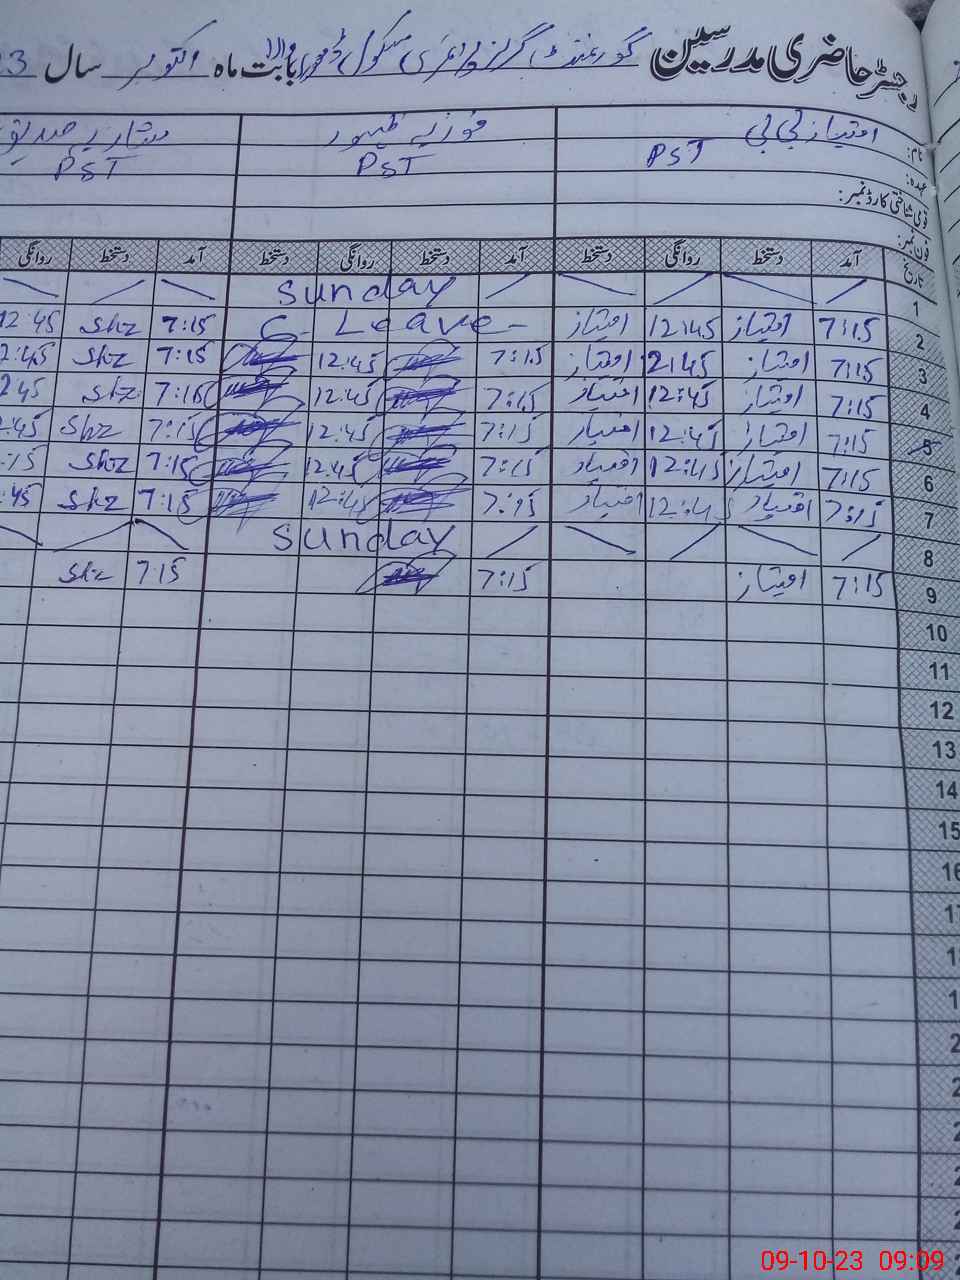 رجسٹر حاضری مدرسین گورنمنٹ گرلز پرائمری سکول بابت ماہ اکتوبر سال 3
نام: امتیاز بی بی فوزیہ ظہور
عہدہ: PST PST PST
قومی شناختی کارڈ نمبر:
فون نمبر:
تاریخ آمد دستخط روانگی دستخط آمد دستخط روانگی دستخط آمد دستخط روانگی
1 Sunday
2 7:15 امتیاز 12:45 امتیاز C- Leave- 7:15 Shz 12:45
3 7:15 امتیاز 2:45 امتیاز 7:15 12:45 7:15 Shz 2:45
4 7:15 امتیاز 12:45 امتیاز 7:15 12:45 7:15 Shz 245
5 7:15 امتیاز 12:45 امتیاز 7:15 12:45 7:15 Shz 2:45
6 7:15 امتیاز 12:45 امتیاز 7:15 12:45 7:15 Shz :15
7 7:15 امتیاز 12:45 امتیاز 7:15 12:45 7:15 Shz :45
8 Sunday
9 7:15 امتیاز 7:15 7:15 Shz
10
11
12
13
14
15
16
09-10-23 09:09